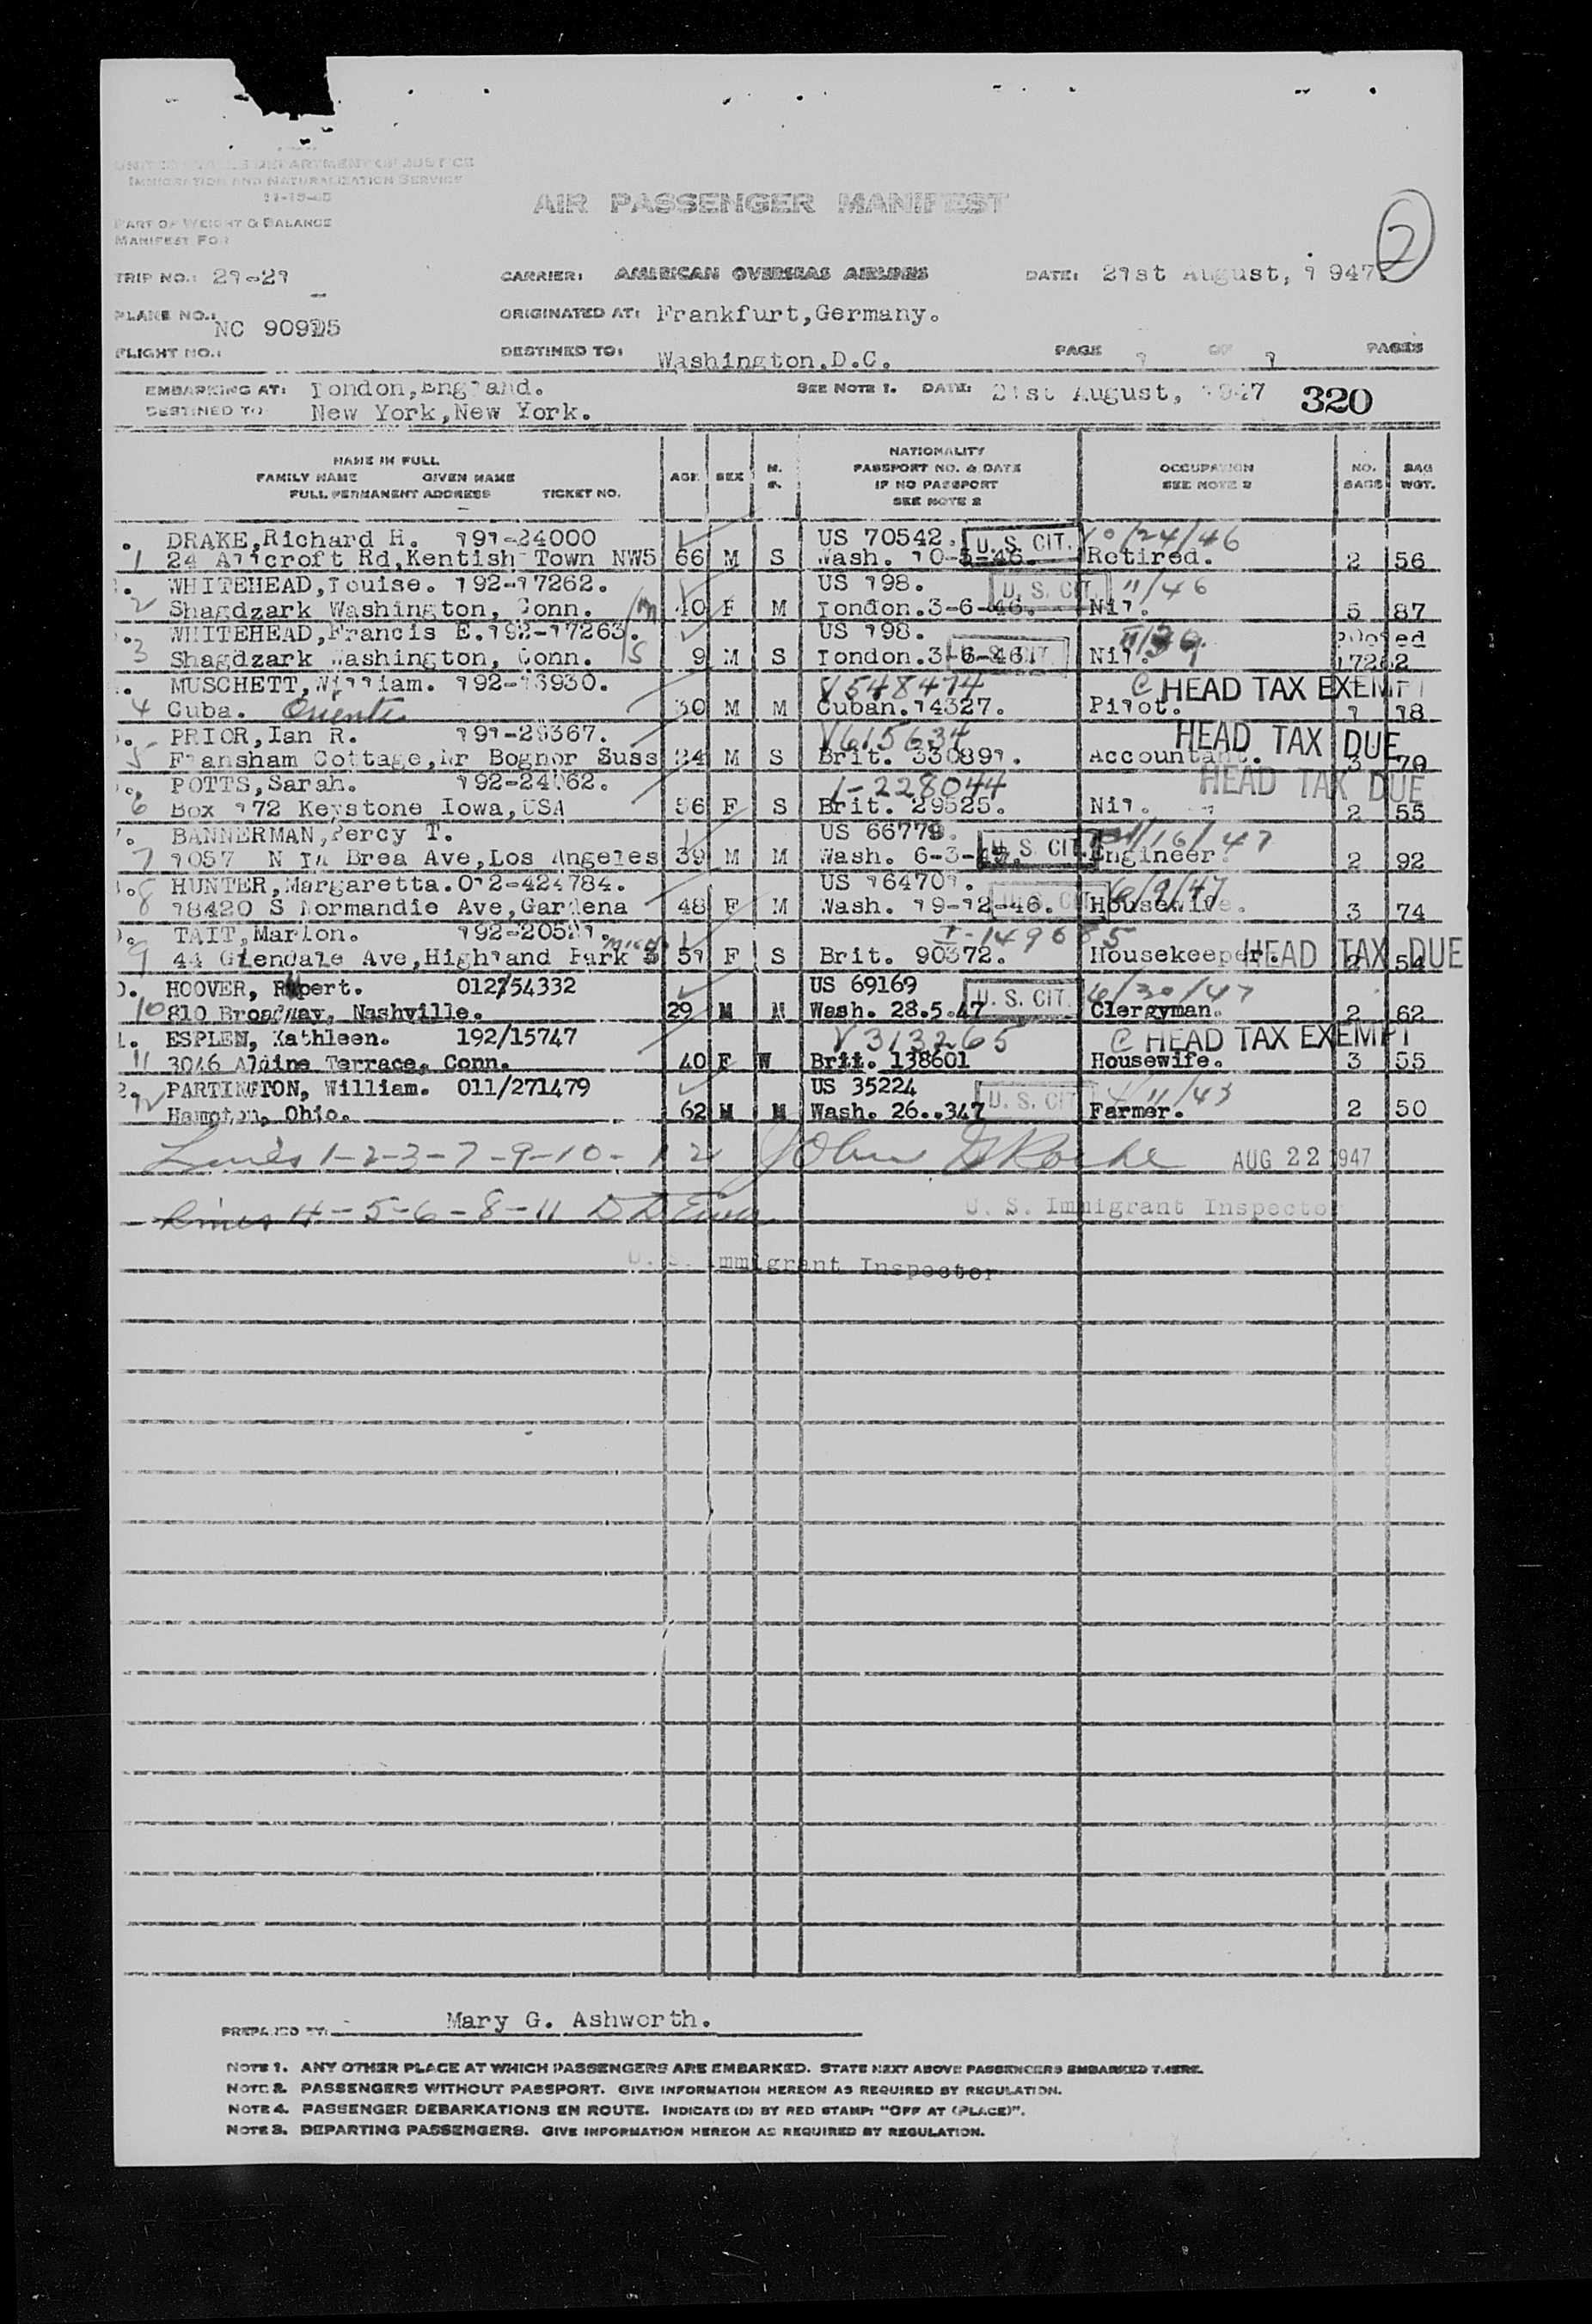 UNITED STATES DEPARTMENT OF JUSTICE
IMMIGRATION AND NATURALIZATION SERVICE
11-15-45
AIR PASSENGER MANIFEST
2
PART OF WEIGHT & BALANCE
MANIFEST FOR
TRIP NO.: 21-21 CARRIER: AMERICAN OVERSEAS AIRLINES DATE: 21st August, 1947.
PLANE NO.: NC 90915 ORIGINATED AT: Frankfurt,Germany.
FLIGHT NO.: DESTINED TO: Washington.D.C. PAGE 1 OF 1 PAGES
EMBARKING AT: London,England. SEE NOTE 1. DATE: 21st August, 1947 320
DESTINED TO New York,New York.
NAME IN FULL
FAMILY NAME GIVEN NAME
FULL PERMANENT ADDRESS TICKET NO.
AGE SEX M. S.
NATIONALITY
PASSPORT NO. & DATE
IF NO PASSPORT
SEE NOTE 2
OCCUPATION
SEE NOTE 2
NO. BAGS
BAG WGT.
DRAKE,Richard H. 191-24000 US 70542. U. S. CIT. 10/24/46
1 24 Allcroft Rd,Kentish Town NW5 66 M S Wash. 10-5-46. Retired. 2 56
WHITEHEAD,Louise. 192-17262. US 198. U. S. CIT. 11/46
2 Shagdzark Washington, Conn. M 40 F M London.3-6-46. Nil. 5 87
WHITEHEAD,Francis E.192-17263. US 198. Pooled
3 Shagdzark Washington, Conn. S 9 M S London.3-6-46. U. S. CIT. Nil. 17262
MUSCHETT,William. 192-13930. V548474 HEAD TAX EXEMPT
4 Cuba. Oriente 30 M M Cuban.14327. Pilot. 1 18
PRIOR,Ian R. 191-25367. V615634 HEAD TAX DUE
5 Flansham Cottage,Nr Bognor Suss 24 M S Brit. 330891. Accountant. 3 70
POTTS,Sarah. 192-24562. 1-228044 HEAD TAX DUE
6 Box 172 Keystone Iowa,USA 56 F S Brit. 29525. Nil. 2 55
BANNERMAN,Percy T. US 66779. U. S. CIT. /16/47
7 1057 N La Brea Ave,Los Angeles 39 M M Wash. 6-3-47. Engineer. 2 92
HUNTER,Margaretta.012-424784. US 164701. U. S. CIT. 6/9/47
8 18420 S Normandie Ave,Gardena 48 F M Wash. 19-12-46. Housewife. 3 74
TAIT,Marion. 192-20521. I-149685
9 44 Glendale Ave,Highland Park Mich. 51 F S Brit. 90372. Housekeeper. HEAD TAX DUE 2 54
HOOVER, Rupert. 012/54332 US 69169 U. S. CIT. 6/30/47
10 810 Broadway, Nashville. 29 M M Wash. 28.5.47 Clergyman. 2 62
ESPLEN, Kathleen. 192/15747 V313265 HEAD TAX EXEMPT
11 3046 Aldine Terrace, Conn. 40 F W Brit. 138601 Housewife. 3 55
PARTINGTON, William. 011/271479 US 35224 U. S. CIT. /11/43
12 Hampton, Ohio. 62 M M Wash. 26..347 Farmer. 2 50
Lines 1-2-3-7-9-10-12 John AUG 22 1947
Lines 4-5-6-8-11 U. S. Immigrant Inspector
U. S. Immigrant Inspector
PREPARED BY: Mary G. Ashworth.
NOTE 1. ANY OTHER PLACE AT WHICH PASSENGERS ARE EMBARKED. STATE NEXT ABOVE PASSENGERS EMBARKED THERE.
NOTE 2. PASSENGERS WITHOUT PASSPORT. GIVE INFORMATION HEREON AS REQUIRED BY REGULATION.
NOTE 4. PASSENGER DEBARKATIONS EN ROUTE. INDICATE (D) BY RED STAMP: "OFF AT (PLACE)".
NOTE 3. DEPARTING PASSENGERS. GIVE INFORMATION HEREON AS REQUIRED BY REGULATION.